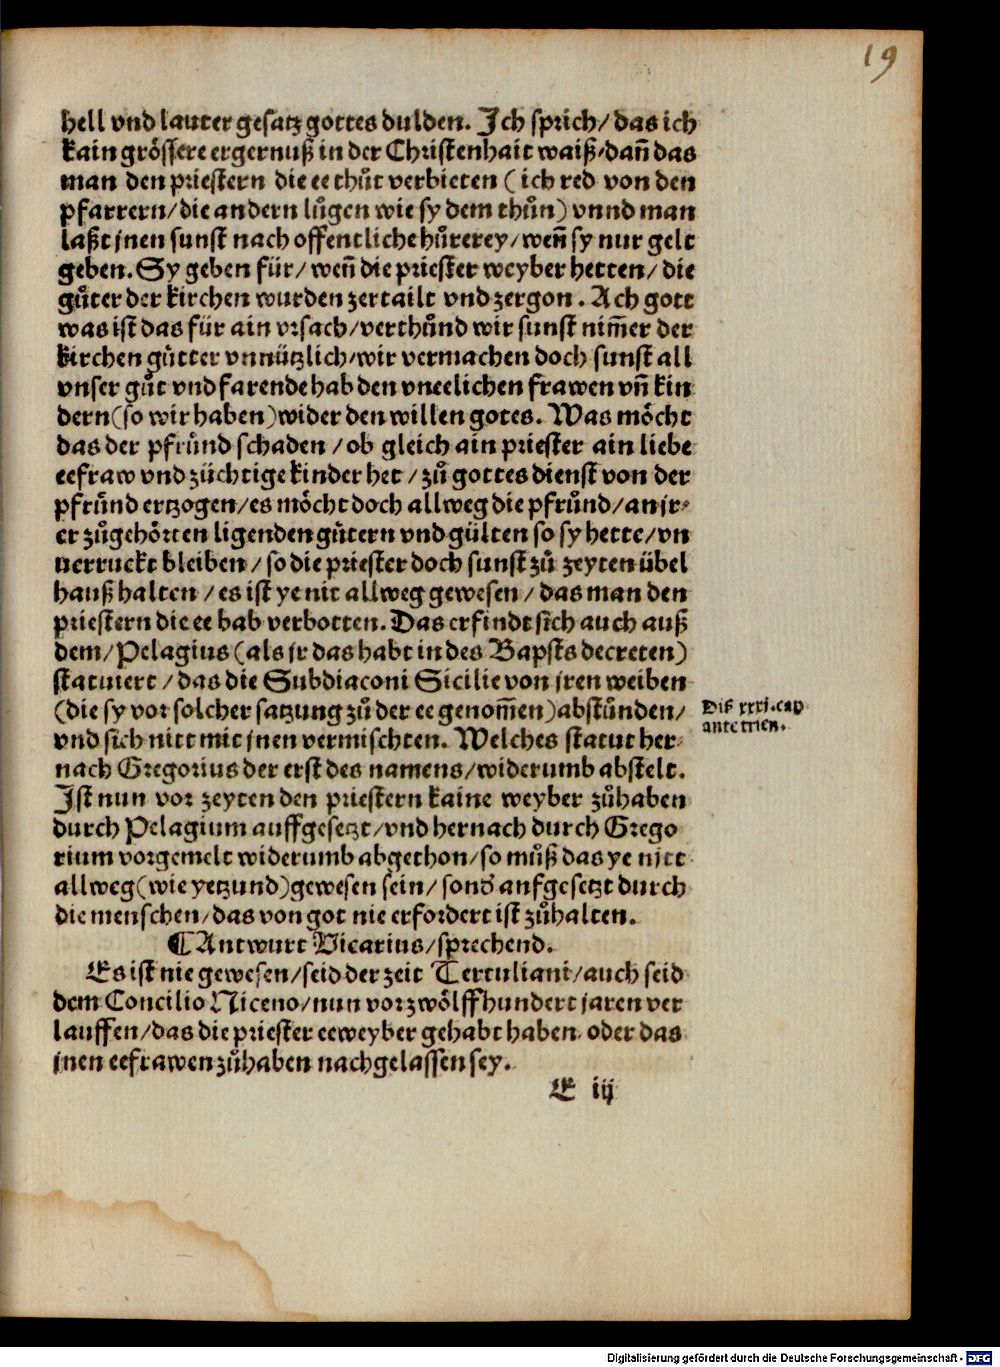 19
hell vnd lauter gesatz gottes dulden. Jch sprich/das ich
kain grössere ergernuß in der Christenhait waiß/dañ das
man den priestern die ee thůt verbieten (ich red von den
pfarrern/die andern lůgen wie sy dem thůn) vnnd man
laßt jnen sunst nach offentliche hůrerey/weñ sy nur gelt
geben. Sy geben für/weñ die priester weyber hetten/die
gůter der kirchen wurden zertailt vnd zergon. Ach gott
was ist das für ain vrsach/verthůnd wir sunst nim̃er der
kirchen gůtter vnnützlich/wir vermachen doch sunst all
vnser gůt vnd farende hab den vneelichen frawen vñ kin
dern(so wir haben)wider den willen gotes. Was möcht
das der pfrůnd schaden/ob gleich ain priester ain liebe
eefraw vnd züchtige kinder het/zů gottes dienst von der
pfrůnd ertzogen/es möcht doch allweg die pfrůnd/an jr-
er zůgehörten ligenden gůtern vnd gülten so sy hette/vn
uerruckt bleiben/so die priester doch sunst zů zeyten übel
hauß halten/es ist ye nit allweg gewesen/das man den
priestern die ee hab verbotten. Das erfindt sich auch auß
dem/Pelagius(als jr das habt in des Bapsts decreten)
statuiert/das die Subdiaconi Sicilie von jren weiben
(die sy vor solcher satzung zů der ee genom̃en)abstůnden/
vnd sich nitt mit jnen vermischten. Welches statut her-
nach Gregorius der erst des namens/widerumb abstelt.
Jst nun vor zeyten den priestern kaine weyber zůhaben
durch Pelagium auffgesetzt/vnd hernach durch Grego
rium vorgemelt widerumb abgethon/so můß das ye nitt
allweg(wie yetzund)gewesen sein/sond̕ aufgesetzt durch
die menschen/das von got nie erfordert ist zůhalten.
¶Antwurt Vicarius/sprechend.
Es ist nie gewesen/seid der zeit Tertuliani/auch seid
dem Concilio Niceno/nun vor zwölffhundert jaren ver
lauffen/das die priester eeweyber gehabt haben oder das
jnen eefrawen zůhaben nachgelassen sey.
E iij
Dis xxxj.cap
ante trien.
Digitalisierung gefördert durch die Deutsche Forschungsgemeinschaft - DFG